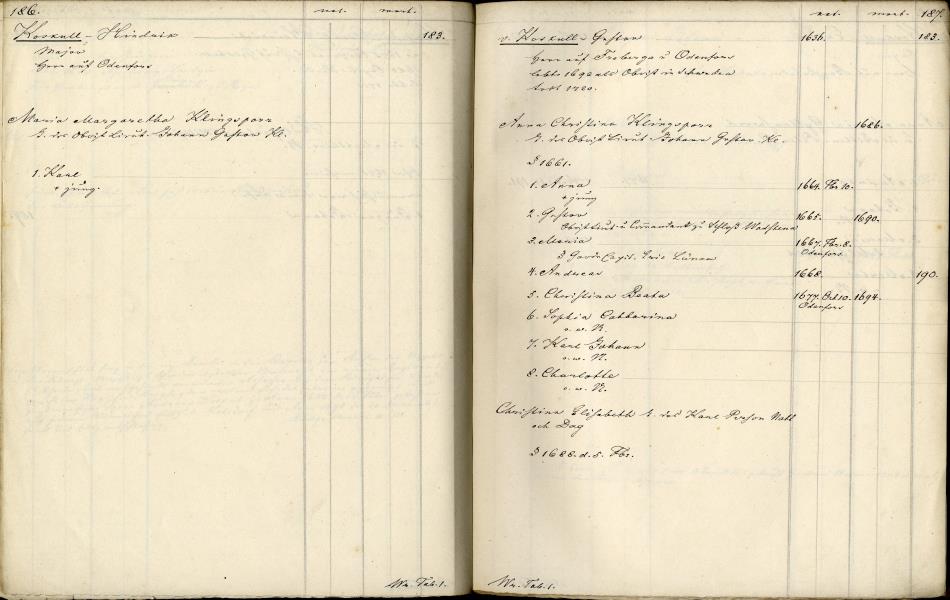 186. nat. mort.
Koskull - Hindrik 183.
Major
Herr auf Odenfors
Maria Margaretha Klingsporr
T. des Obrist Lieut. Johann Gustav Kl.
1. Karl
+ jung.
Wn. Tab. 1.
nat. mort. 187.
v. Koskull - Gustav 1636. 183.
Herr auf Froberga u Odenfors
lebte 1692 als Obrist in Schweden
todt 1720.
Anna Christina Klingsporr 1686.
T. des Obrist Lieut Johann Gustav Kl.
§ 1661.
1. Anna 1664. Fbr. 10.
+ jung
2. Gustav 1665. 1690.
Obrist Lieut u Commandant zu Schloß Wadstena
3. Maria 1667. Fbr. 8.
Odenfors
4. Andreas 1668. 190.
5. Christina Beata 1677. Oct 10. 1694.
Odenfors
6. Sophia Catharina
o. w. N.
7. Karl Johann
o. w. N.
8. Charlotte
o. w. N.
Christina Elisabeth T. des Karl Person Natt
och Dag
§ 1688. d. 5. Fbr.
Wn. Tab. 1.